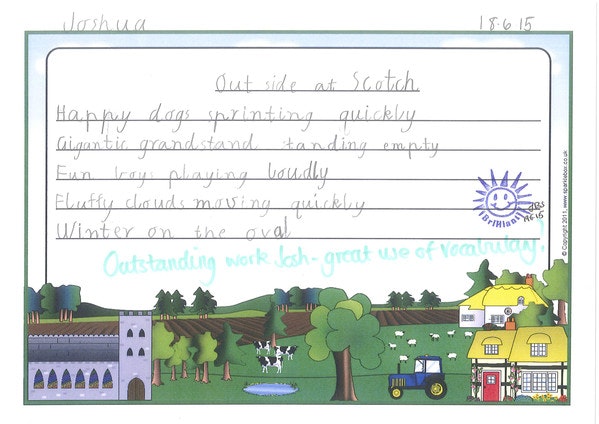 Joshua 18.6.15
Out side at Scotch
Happy dogs sprinting quickly
Gigantic grandstand standing empty
Fun boys playing loudly
Fluffy clouds moving quickly
Winter on the oval
Brilliant
Outstanding work Josh - great use of vocabulary!
© Copyright 2011, www.sparklebox.co.uk